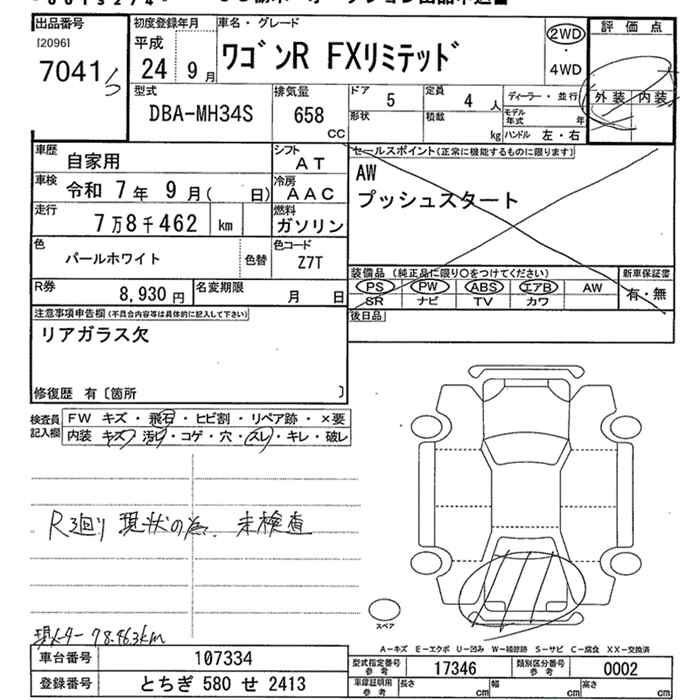 出品番号
I20961
7041
初度登録年月
平成
24 年 9 月
車名・グレード
ワゴンR FXリミテッド
2WD
・
4WD
評価点
外装 内装
型式
DBA-MH34S
排気量
658
CC
ドア
5
定員
4 人
形状
積載
kg
ディーラー・並行
モデル年式 年
ハンドル 左・右
車歴
自家用
シフト
AT
車検
令和 7 年 9 月( 日)
冷房
AAC
走行
7万8千462 km
燃料
ガソリン
色
パールホワイト
色替
色コード
Z7T
R券
8,930 円
名変期限
月 日
セールスポイント(正常に機能するものに限ります)
AW
プッシュスタート
装備品 (純正品に限り○をつけてください)
PS PW ABS エアB AW
SR ナビ TV カワ
新車保証書
有・無
後日品
注意事項申告欄(不具合内容等は具体的に記入して下さい)
リアガラス欠
修復歴 有〔箇所 〕
検査員記入欄
FW キズ・飛石・ヒビ割・リペア跡・×要
内装 キズ・汚レ・コゲ・穴・スレ・キレ・破レ
R廻り現状の為、未検査
現メーター 78,463km
スペア
A-キズ E-エクボ U-凹み W-補修跡 S-サビ C-腐食 XX-交換済
車台番号 107334
登録番号 とちぎ 580 せ 2413
型式指定番号参考 17346
類別区分番号参考 0002
車庫証明用参考 長さ cm 幅 cm 高さ cm